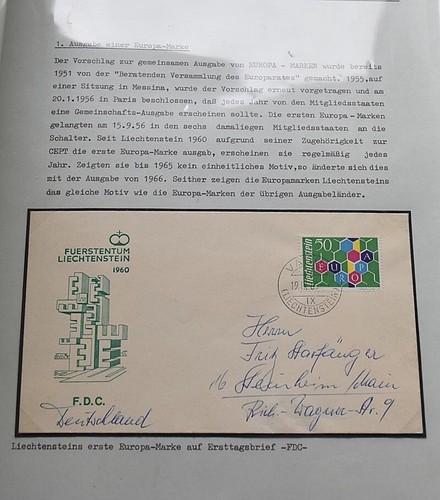 1. Ausgabe einer Europa-Marke
Der Vorschlag zur gemeinsamen Ausgabe von EUROPA - MARKEN wurde bereits
1951 von der "Beratenden Versammlung des Europarates" gemacht. 1955,auf
einer Sitzung in Messina, wurde der Vorschlag erneut vorgetragen und am
20.1.1956 in Paris beschlossen, daß jedes Jahr von den Mitgliedsstaaten
eine Gemeinschafts-Ausgabe erscheinen sollte. Die ersten Europa-Marken
gelangten am 15.9.56 in den sechs damaliegen Mitgliedsstaaten an die
Schalter. Seit Liechtenstein 1960 aufgrund seiner Zugehörigkeit zur
CEPT die erste Europa-Marke ausgab, erscheinen sie regelmäßig jedes
Jahr. Zeigten sie bis 1965 kein einheitliches Motiv,so änderte sich dies
mit der Ausgabe von 1966. Seither zeigen die Europamarken Liechtensteins
das gleiche Motiv wie die Europa-Marken der übrigen Ausgabeländer.
FUERSTENTUM
LIECHTENSTEIN
1960
50
Liechtenstein
EUROPA
IX
(LIECHTENSTEIN)
Herrn
Fritz
16 Steinheim/Main
Rich.-Wagner-Str. 9
F.D.C.
Deutschland
Liechtensteins erste Europa-Marke auf Ersttagsbrief -FDC-